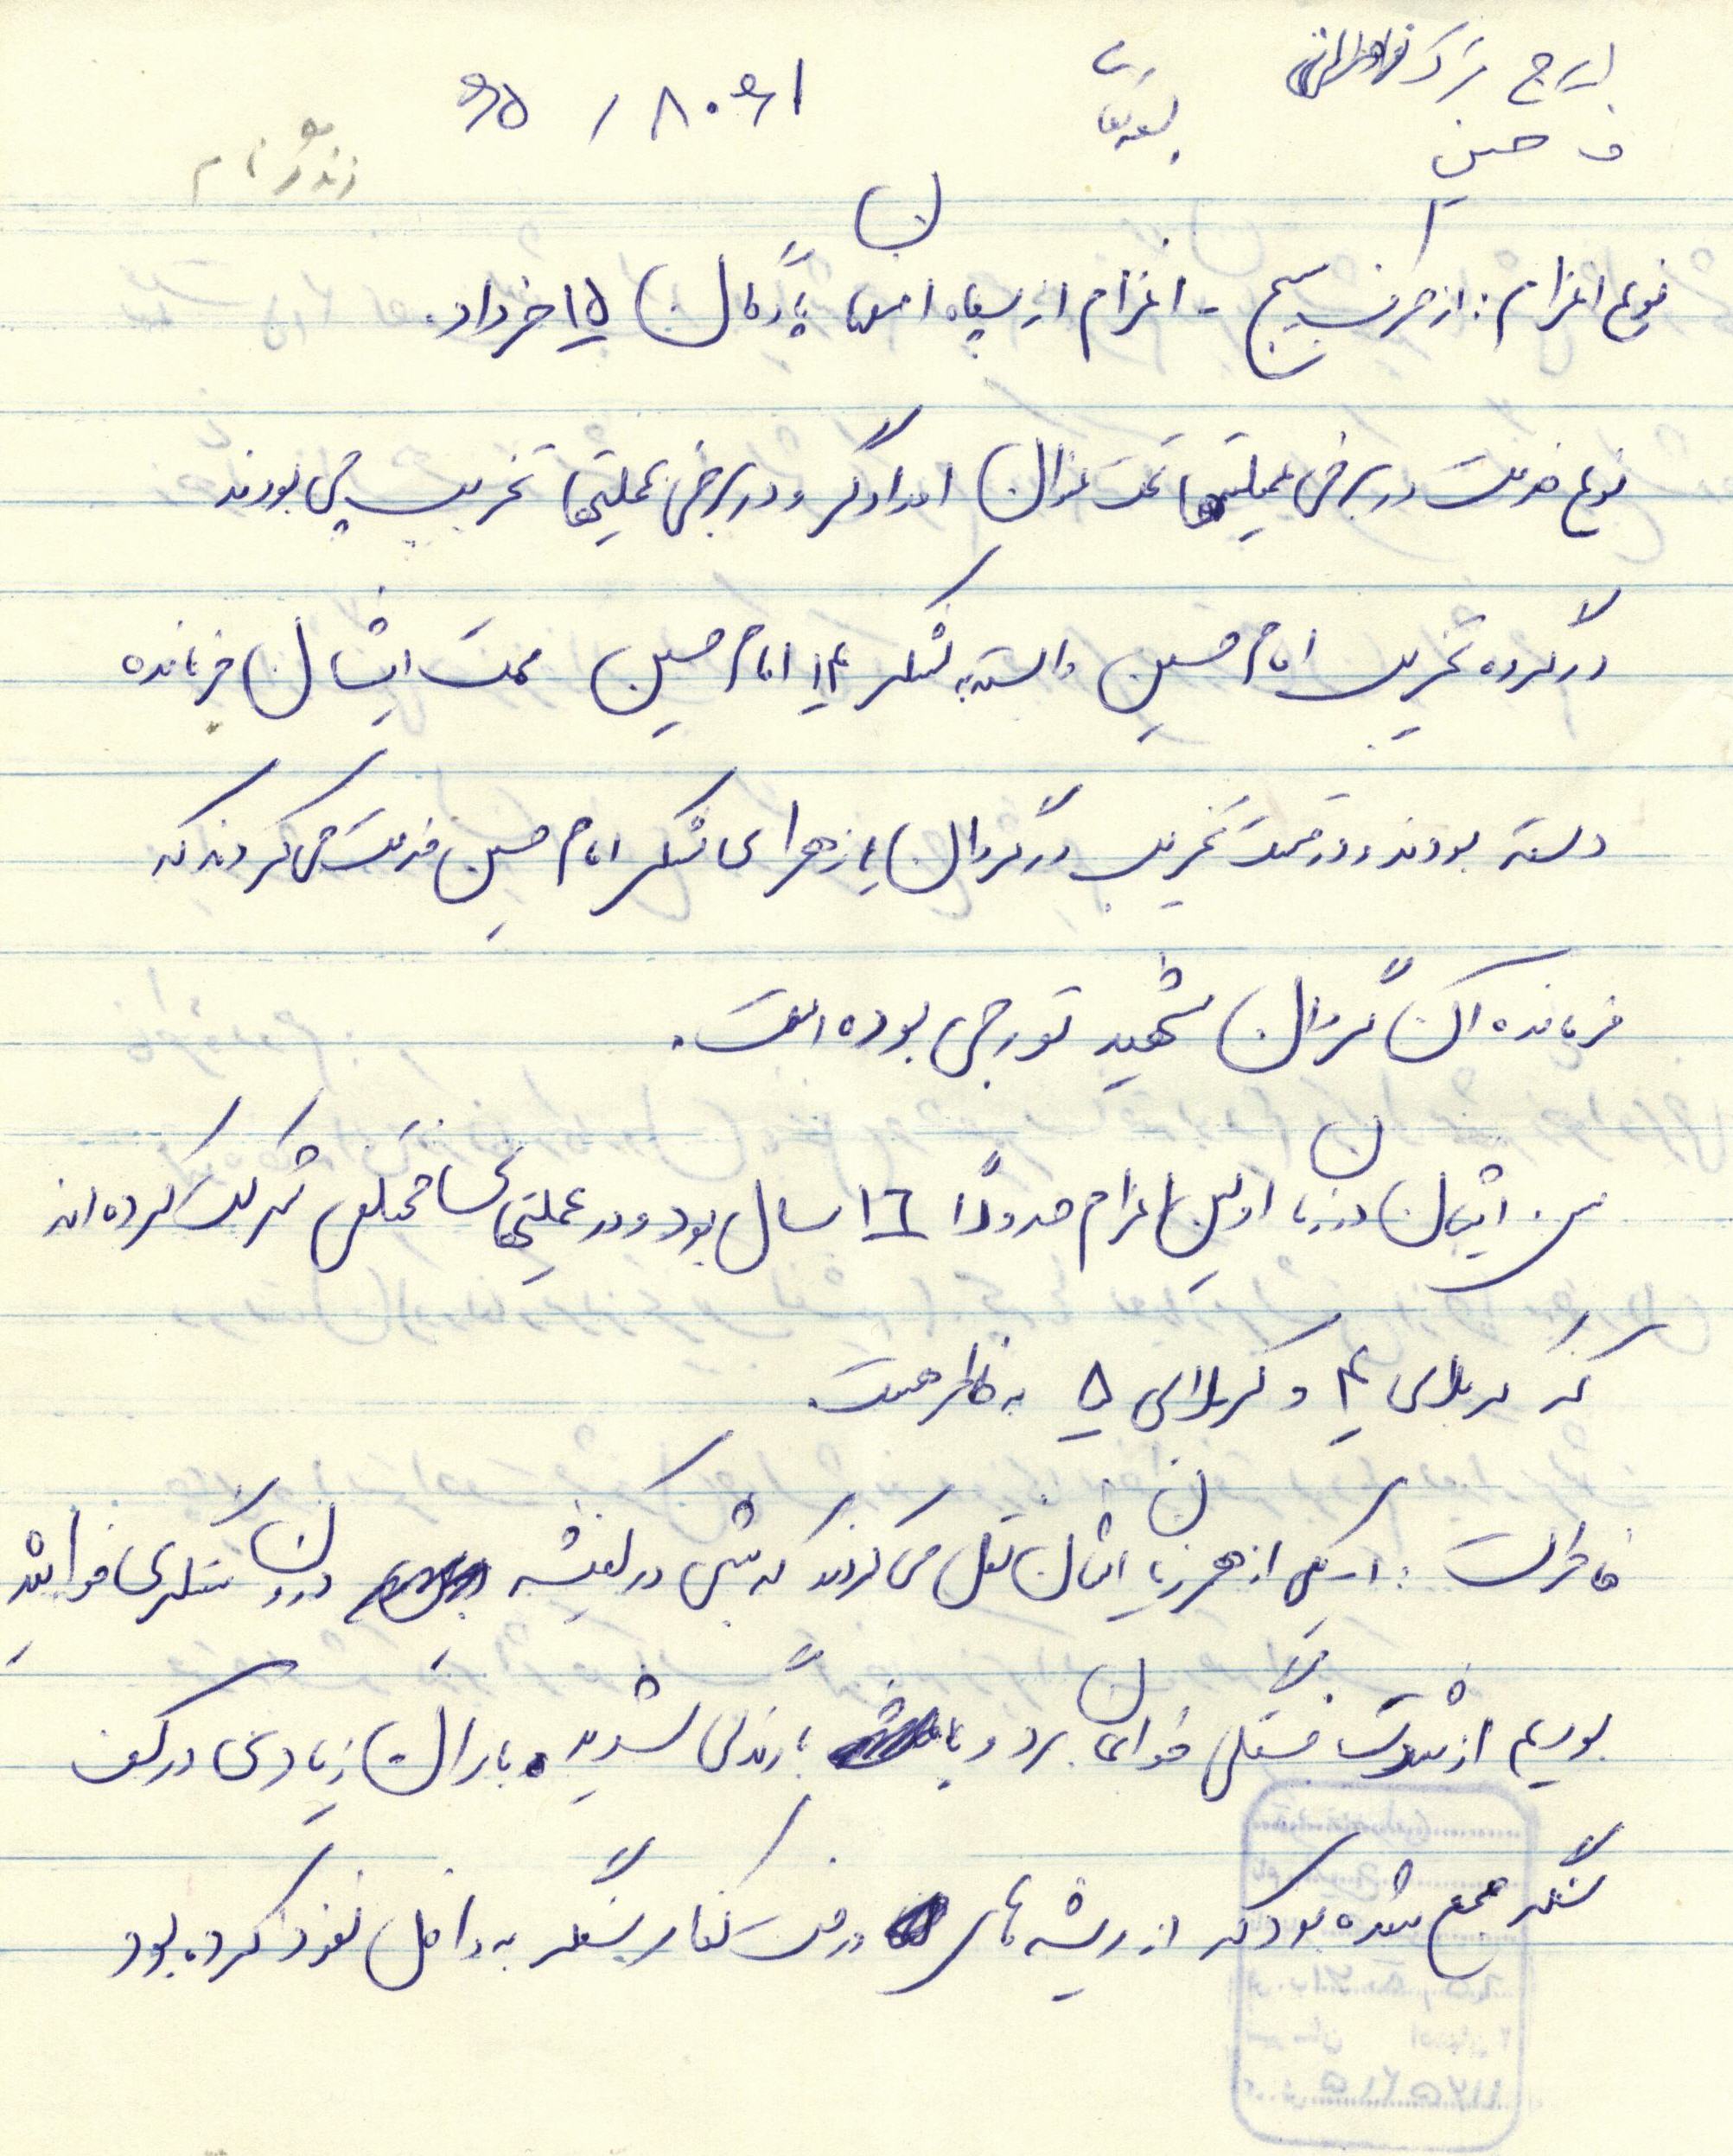 ایرج ترک
ف حسین
۱۶۰۸ / ۶۵
زندگینامه
نوع اعزام: از طرف بسیج - اعزام از سپاه اصفهان پادگان ۱۵ خرداد.
نوع خدمت در برخی عملیتها تحت عنوان امدادگر و در برخی عملیتها تخریب چی بودند
در گروه تخریب امام حسین وابسته به لشکر ۱۴ امام حسین سمت ایشان فرمانده
دسته بودند و در قسمت تخریب در گردان یازهرای لشکر امام حسین خدمت می کردند که
فرمانده آن گردان شهید تورجی بوده است.
سن ایشان در زمان اولین اعزام حدوداً ۱٦ سال بود و در عملیتهای مختلفی شرکت کرده اند
که کربلای ۴ و کربلای ۵ به خاطر هست.
خاطرات: ۱- یکی از همرزمان ایشان نقل می کردند که شبی در درون سنگری خوابیده
بودیم از شدت خستگی خوابمان برد و با بارندگی شدید باران زیادی در کف
سنگر جمع شده بود که از ریشه های درخت کنار سنگر به داخل نفوذ کرده بود